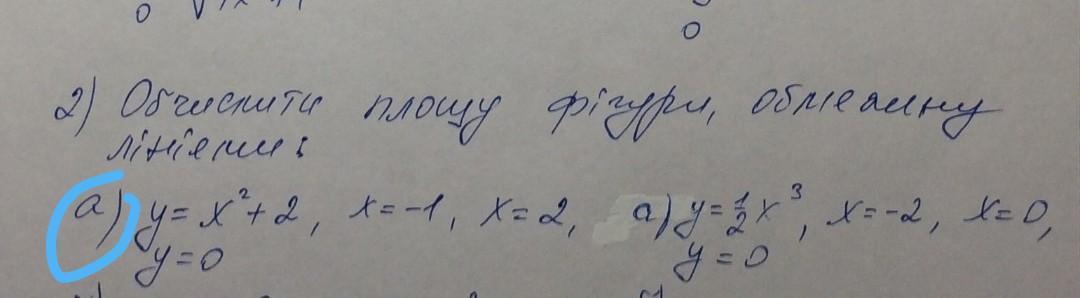 0
0
2) Обчислити площу фігури, обмежину
лініями:
а) y = x² + 2, x = -1, x = 2, а) y = 1/2 x³, x = -2, x = 0,
y = 0 y = 0